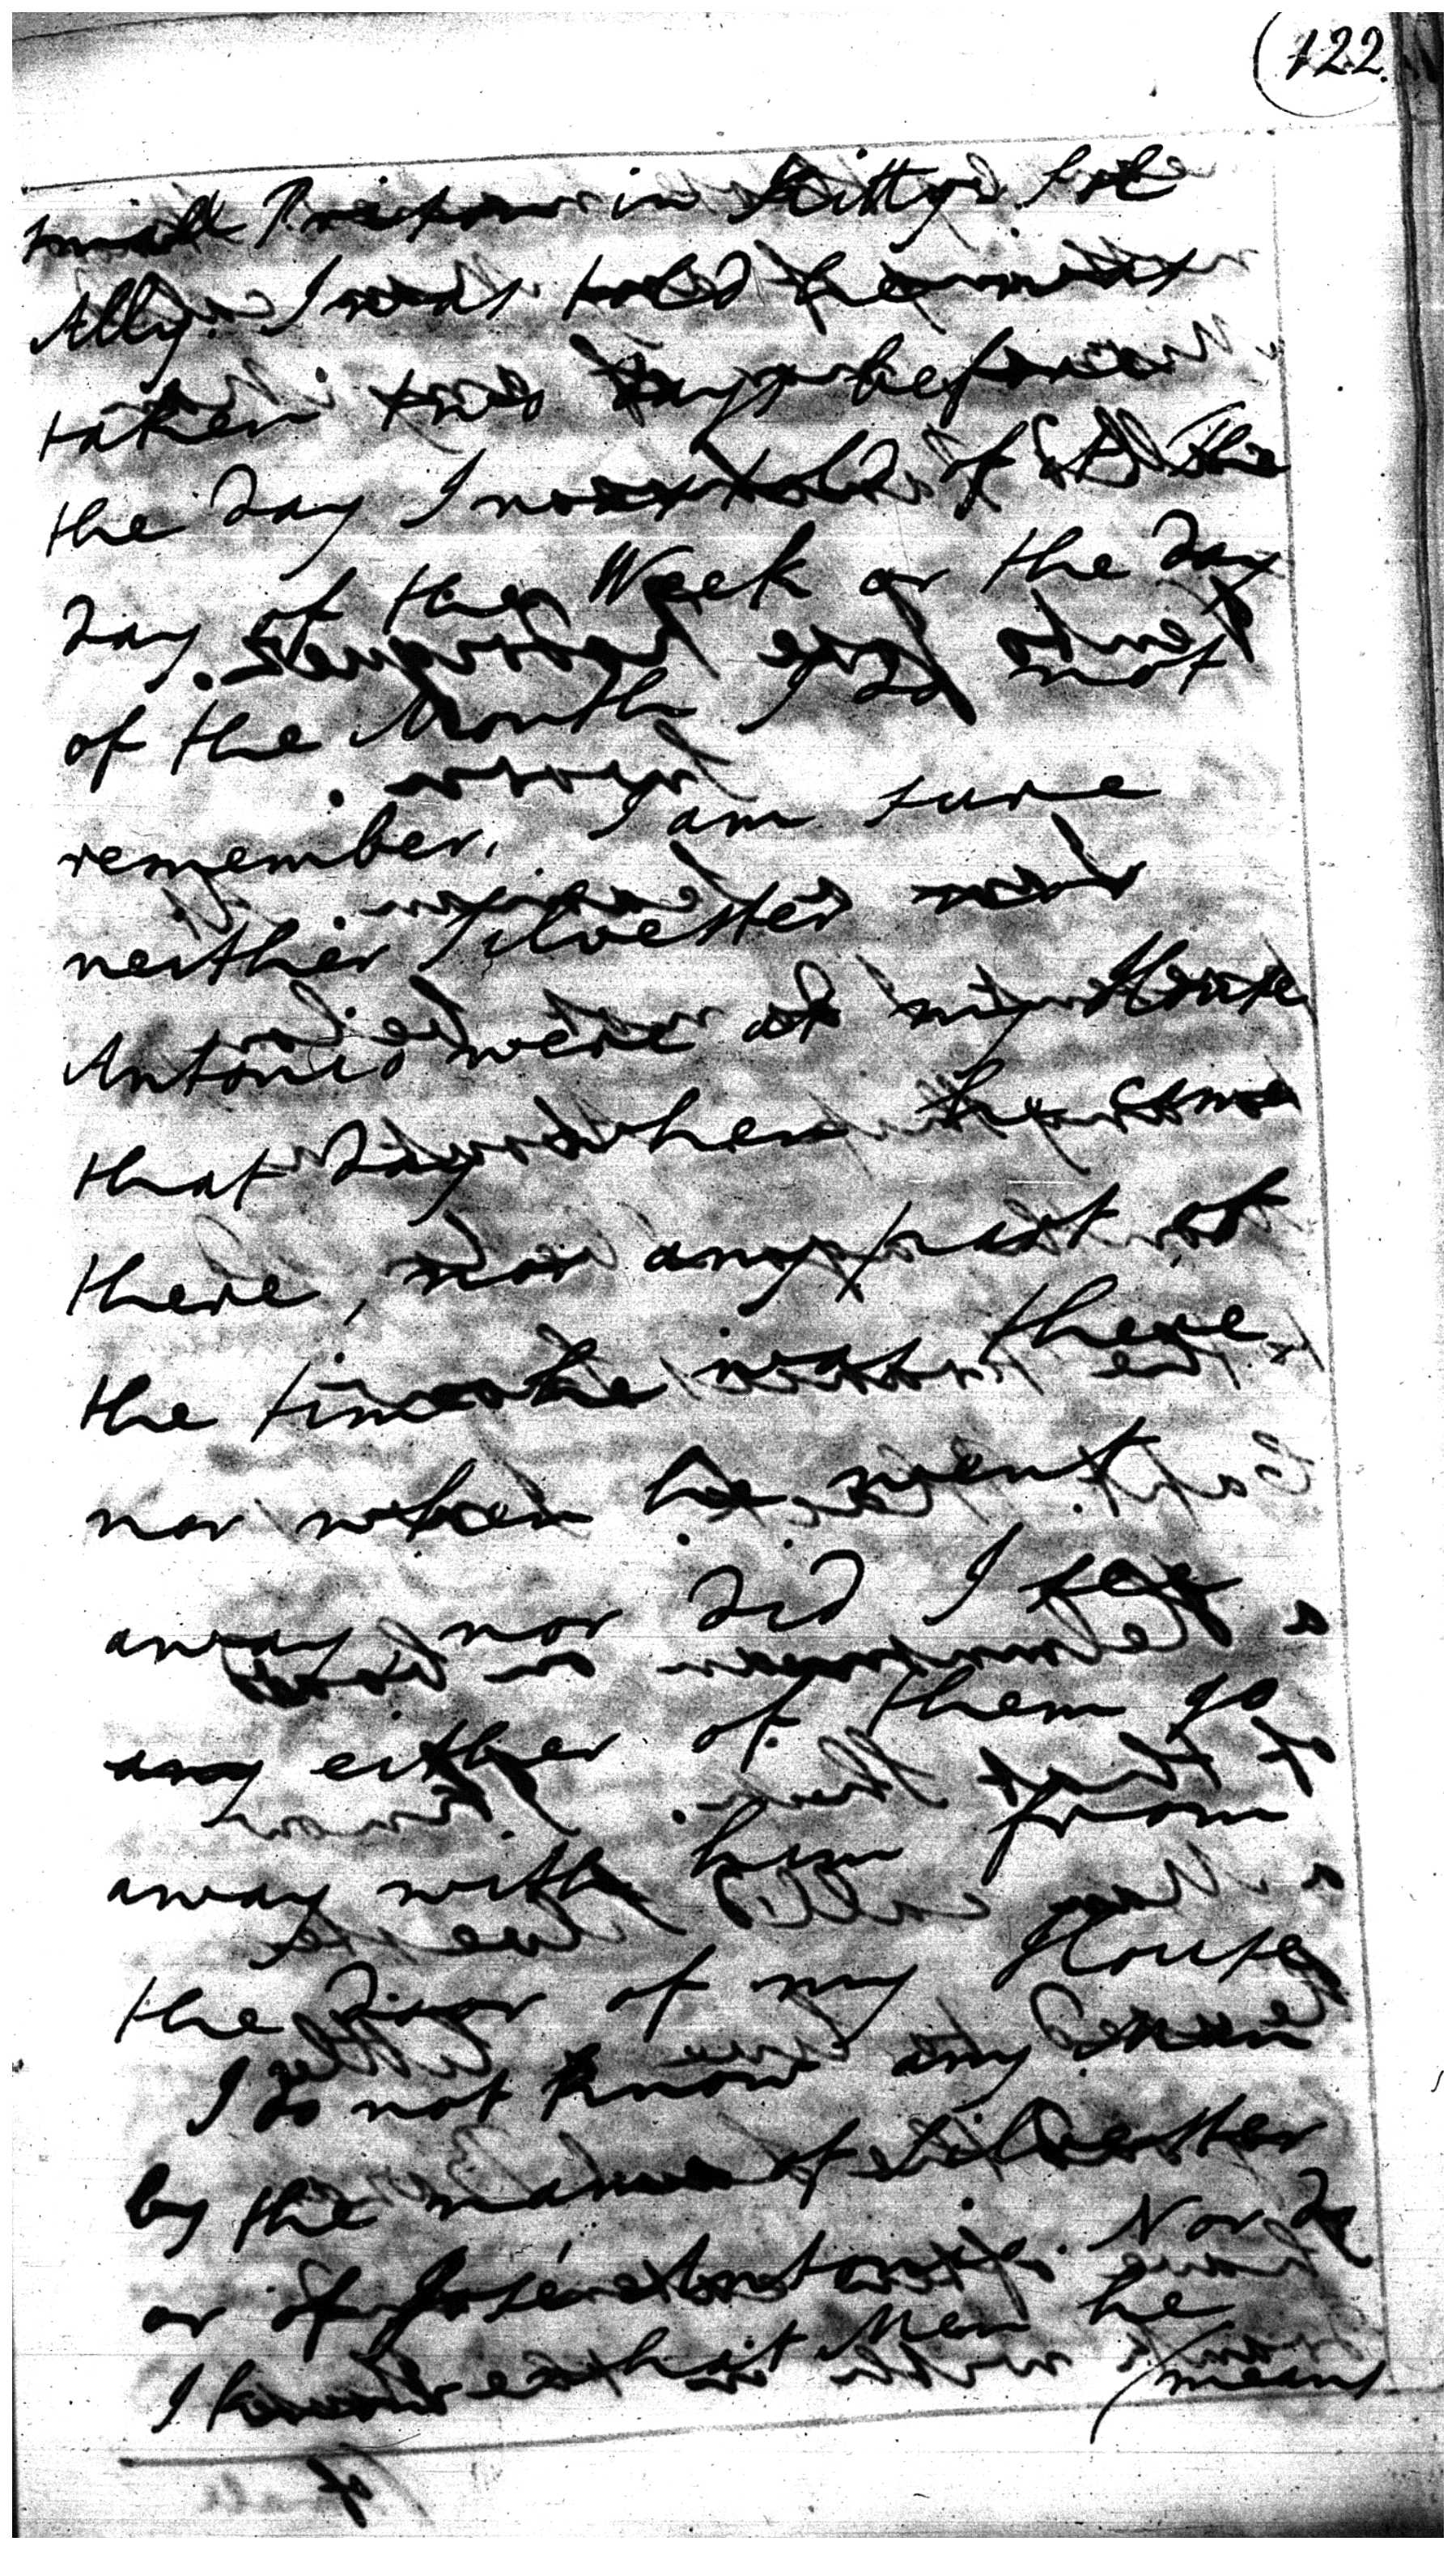 (122.
small Prison in Kittys
Ally. I was told he was
taken two days before
the day I was told of it The
day of the Week or the day
of the Month I do not
remember. I am sure
neither Silvester nor
Antonio were at my House
that day when he came
there, nor any part of
the time he was there
nor when he went
away nor did I see
any either of them go
away with him from
the Door of my House
I do not know any man
by the name of Silvester
or of Jose Antonio. Nor do
I know what Men he
means